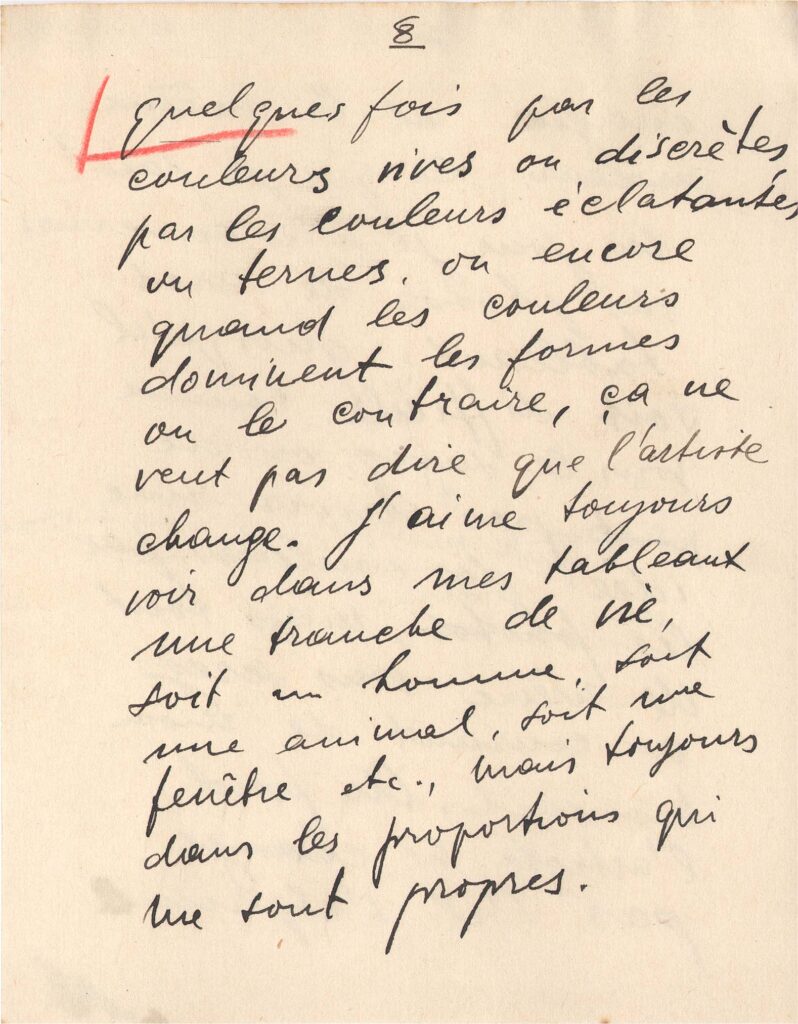 8
quelques fois par les
couleurs vives ou discrètes
par les couleurs éclatantes
ou ternes, ou encore
quand les couleurs
dominent les formes
ou le contraire, ça ne
veut pas dire que l'artiste
change. J'aime toujours
voir dans mes tableaux
une tranche de vie,
soit un homme, soit
une animal, soit une
fenêtre etc., mais toujours
dans les proportions qui
me sont propres.